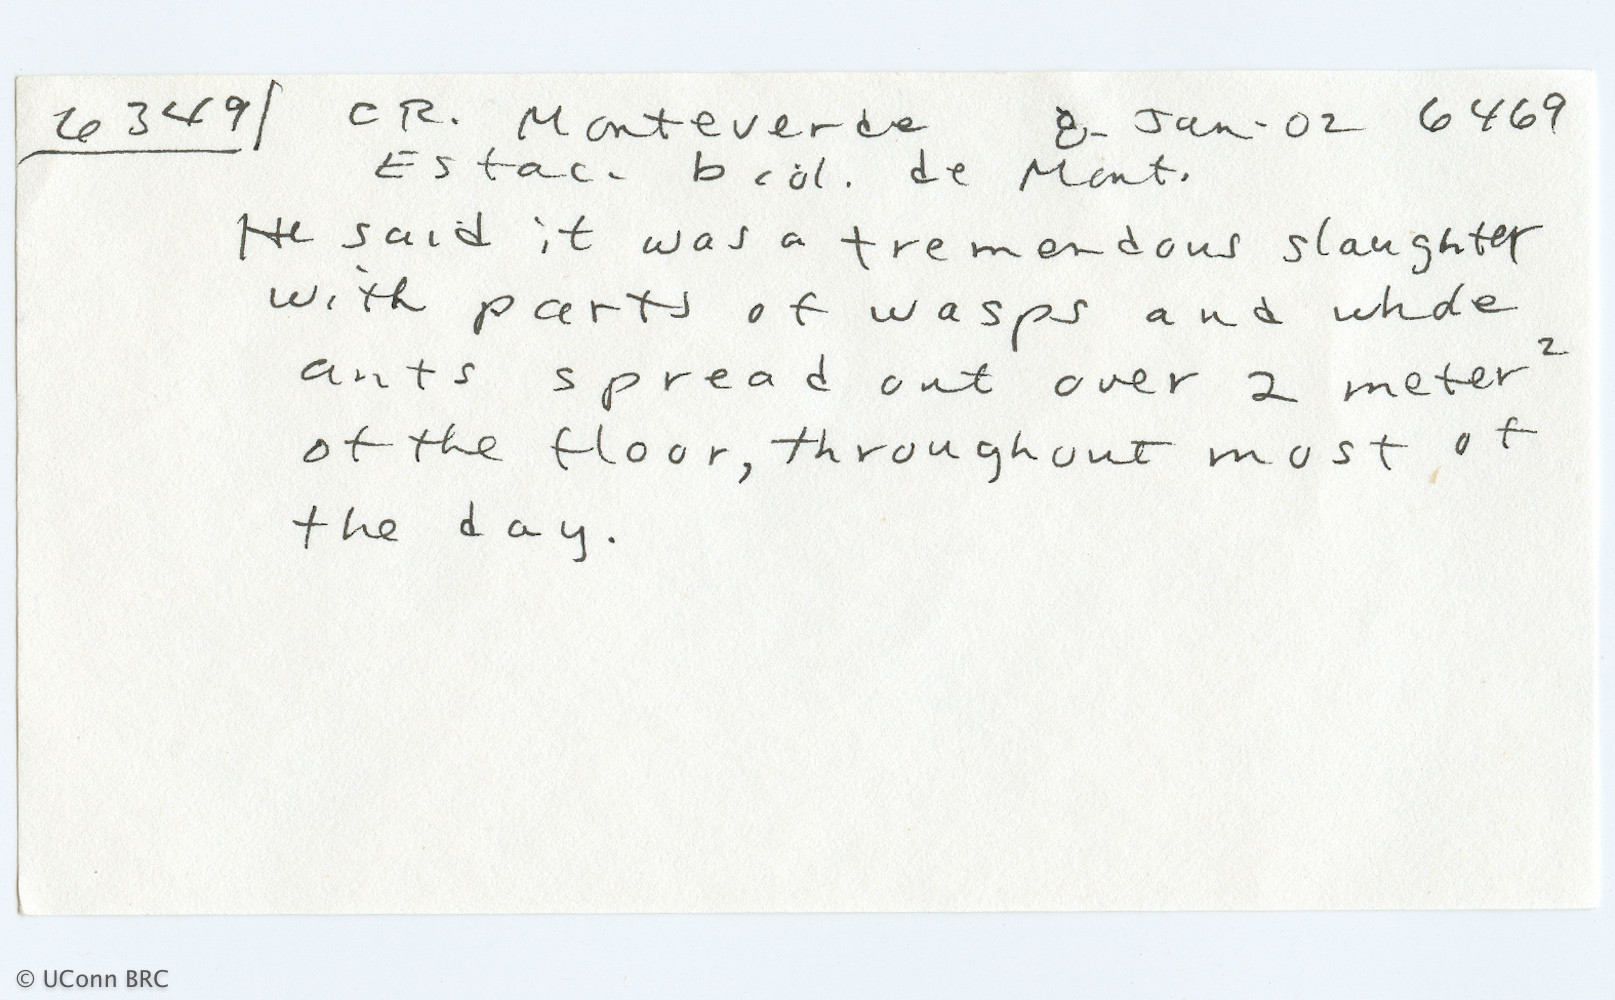 6349/ CR. Monteverde 8-Jan-02 6469
Estac. biol. de Mont.
He said it was a tremendous slaughter
with parts of wasps and whole
ants spread out over 2 meter²
of the floor, throughout most of
the day.
© UConn BRC